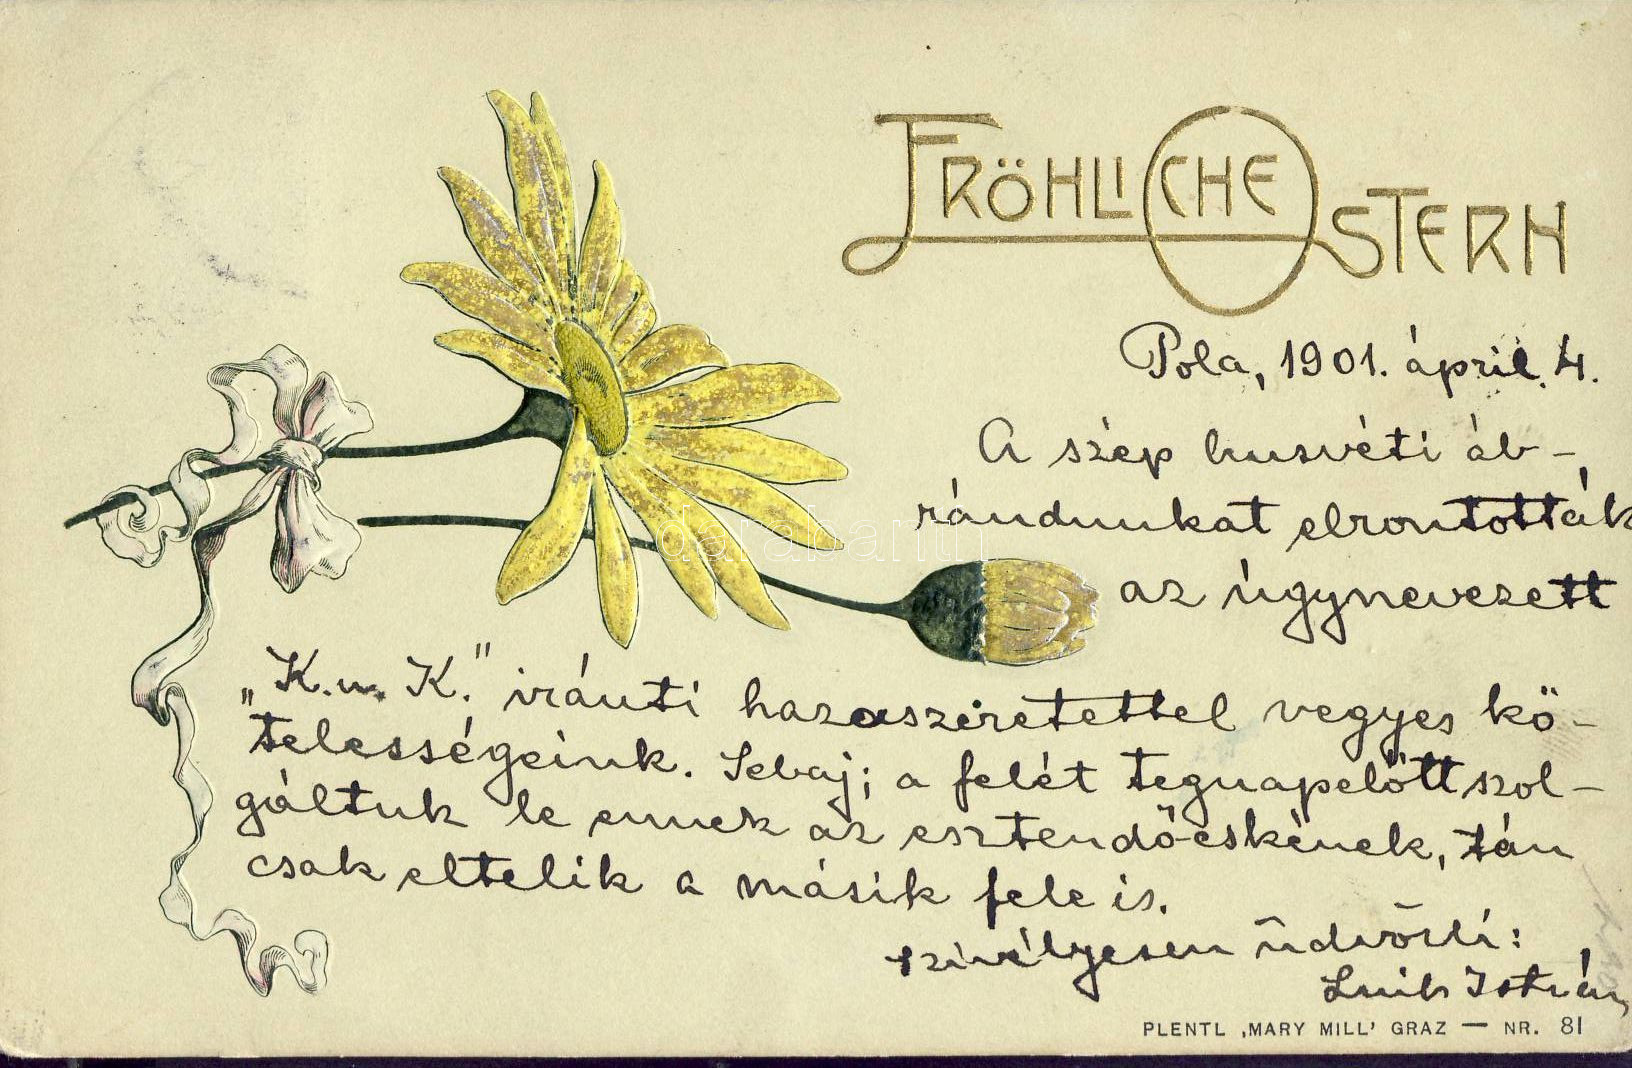 FRÖHLICHE OSTERN
Pola, 1901. ápril. 4.
A szép husvéti áb-
rándunkat elrontották
az úgynevezett
„K. u. K." iránti hazaszeretettel vegyes kö-
telességeink. Sebaj; a felét tegnapelőtt szol-
gáltuk le ennek az esztendőcskének, tán
csak eltelik a másik fele is.
szivélyesen üdvözli:
István
PLENTL ‚MARY MILL' GRAZ — NR. 81
darabanth